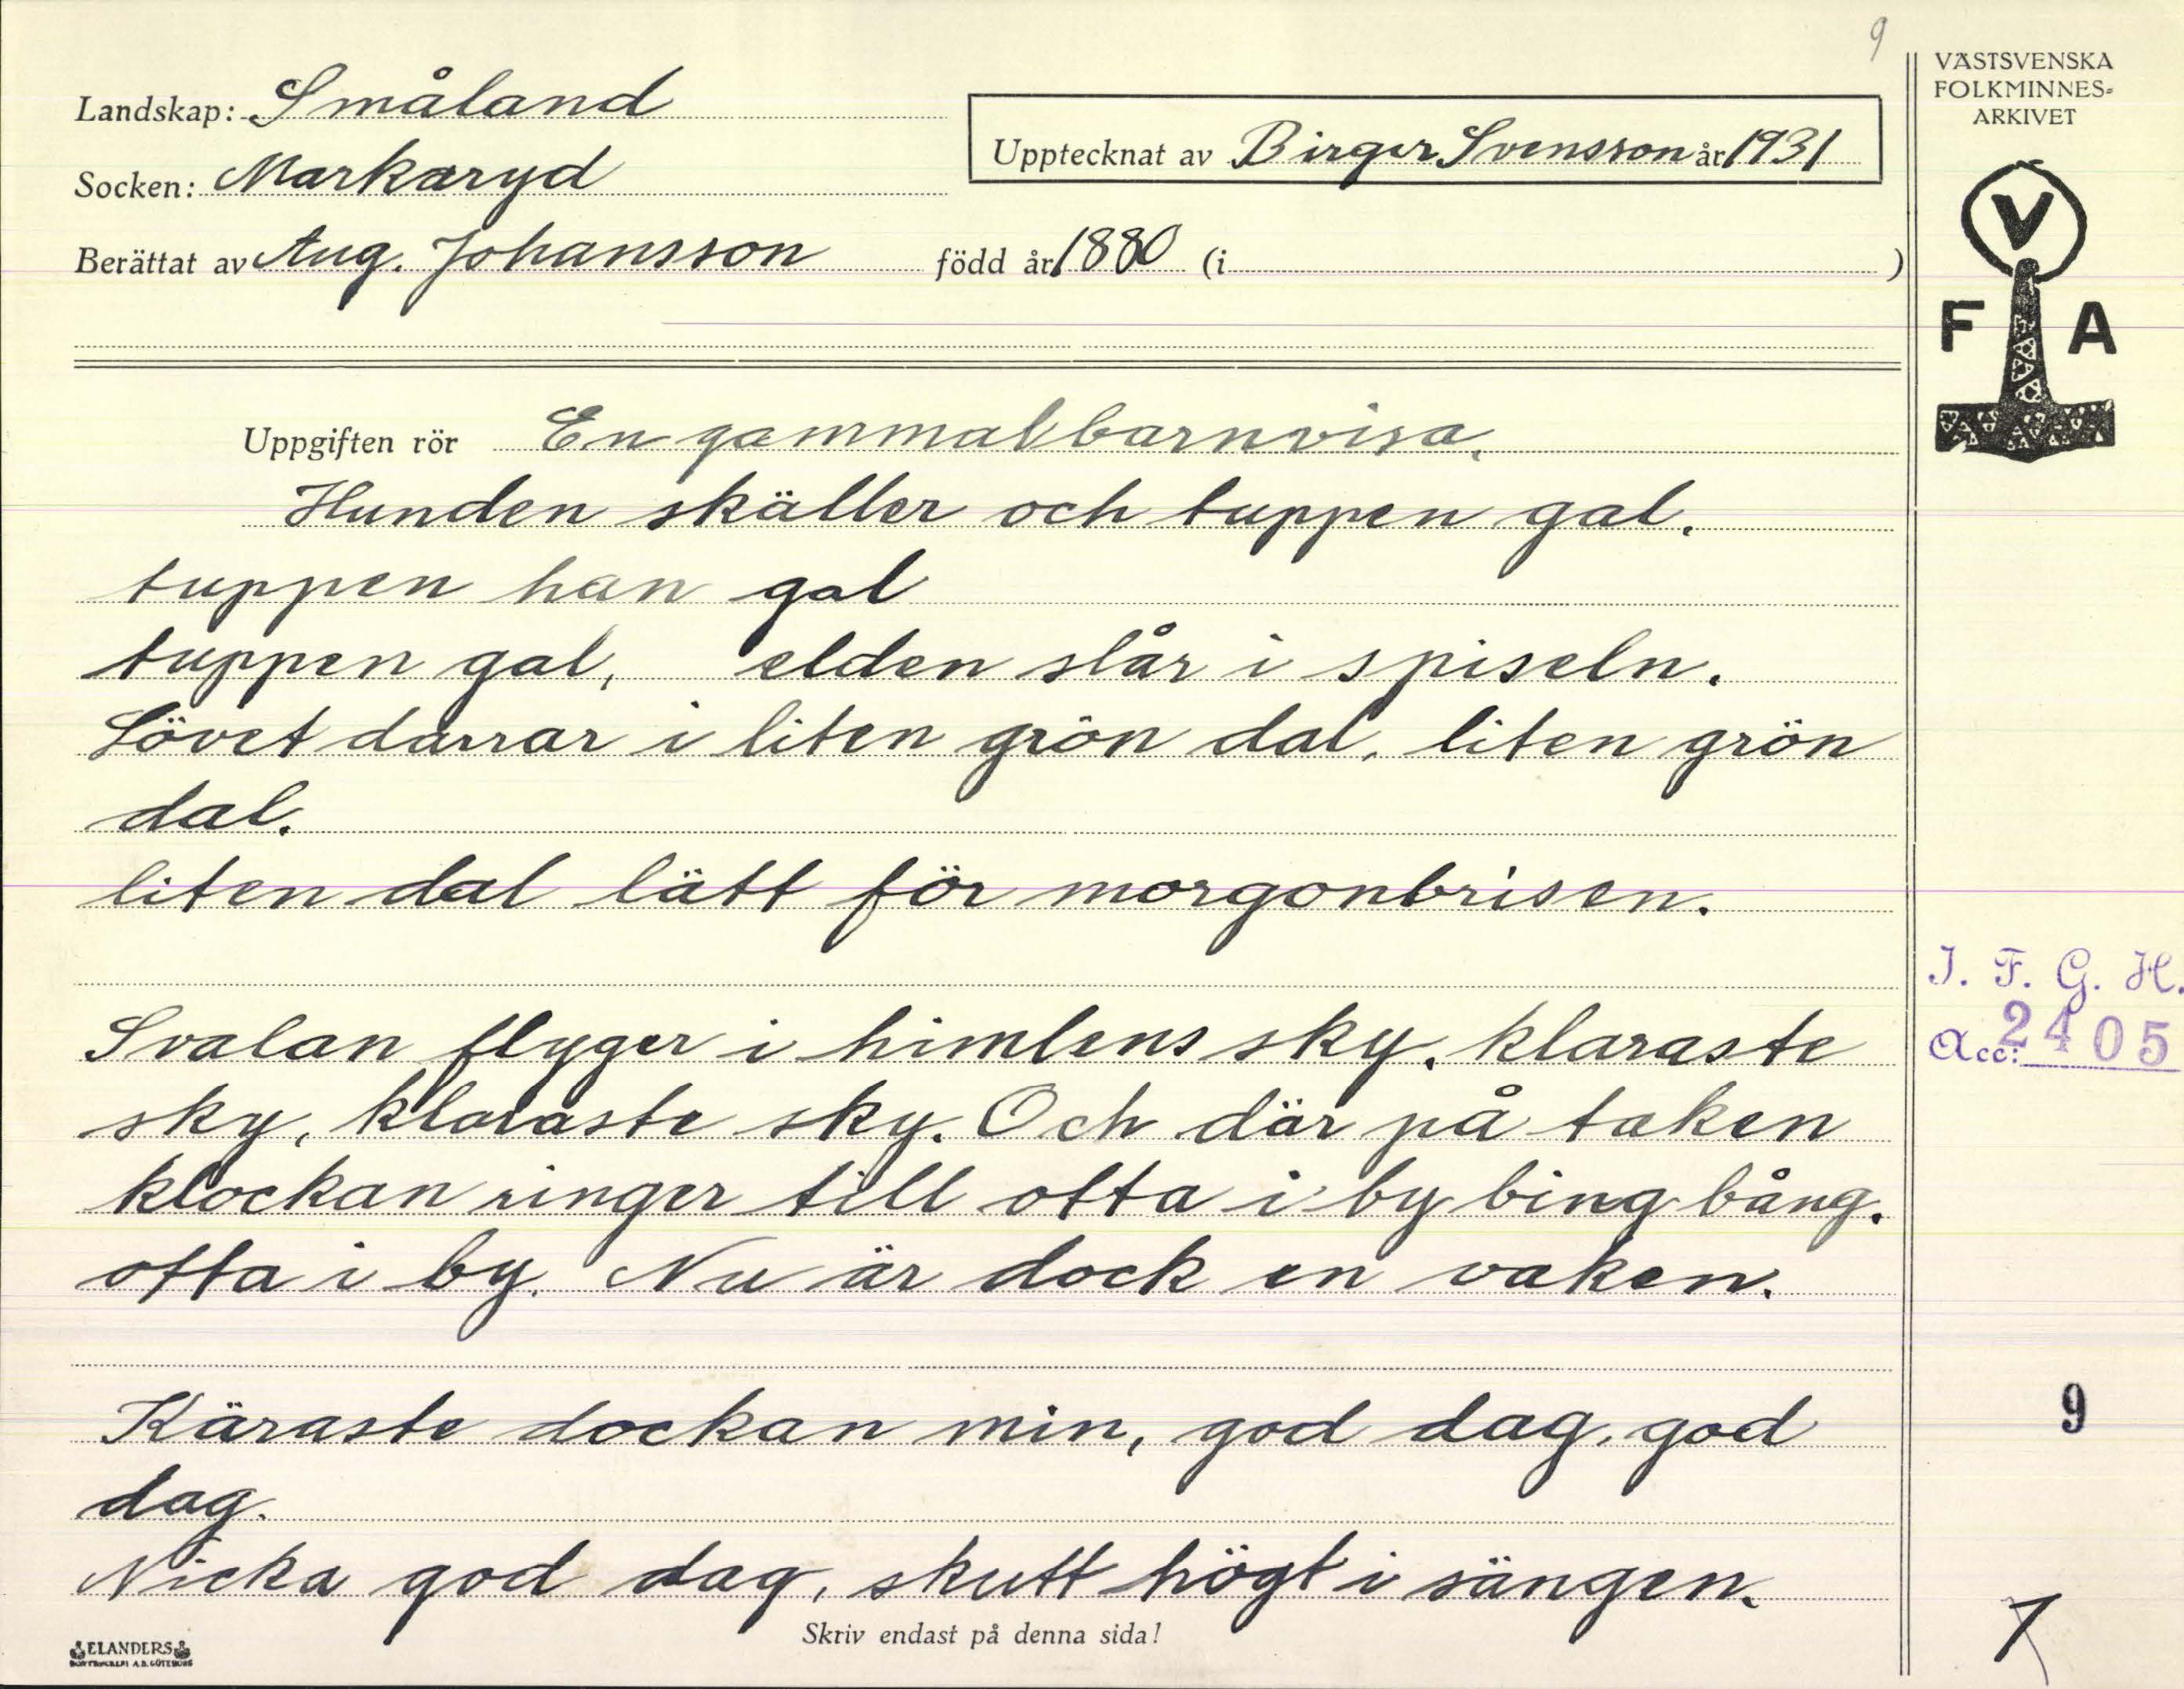 9
VÄSTSVENSKA
FOLKMINNES-
ARKIVET
Landskap: Småland
Upptecknat av Birger Svensson år 1931
Socken: Markaryd
Berättat av Aug. Johansson född år 1880 (i )
V
F A
Uppgiften rör En gammal barnvisa.
Hunden skäller och tuppen gal.
tuppen han gal
tuppen gal, elden slår i spiseln.
Lövet darrar i liten grön dal, liten grön
dal.
liten dal lätt för morgonbrisen.
Svalan flyger i himlens sky, klaraste
sky, klaraste sky. Och där på taken
klockan ringer till otta i by bing bång.
otta i by. Nu är dock en vaken.
I. F. G. H.
Acc: 2405
Käraste dockan min, god dag, god
dag.
Nicka god dag, skutt högt i sängen.
9
Skriv endast på denna sida!
ELANDERS
BOKTRYCKERI A.B. GÖTEBORG
1